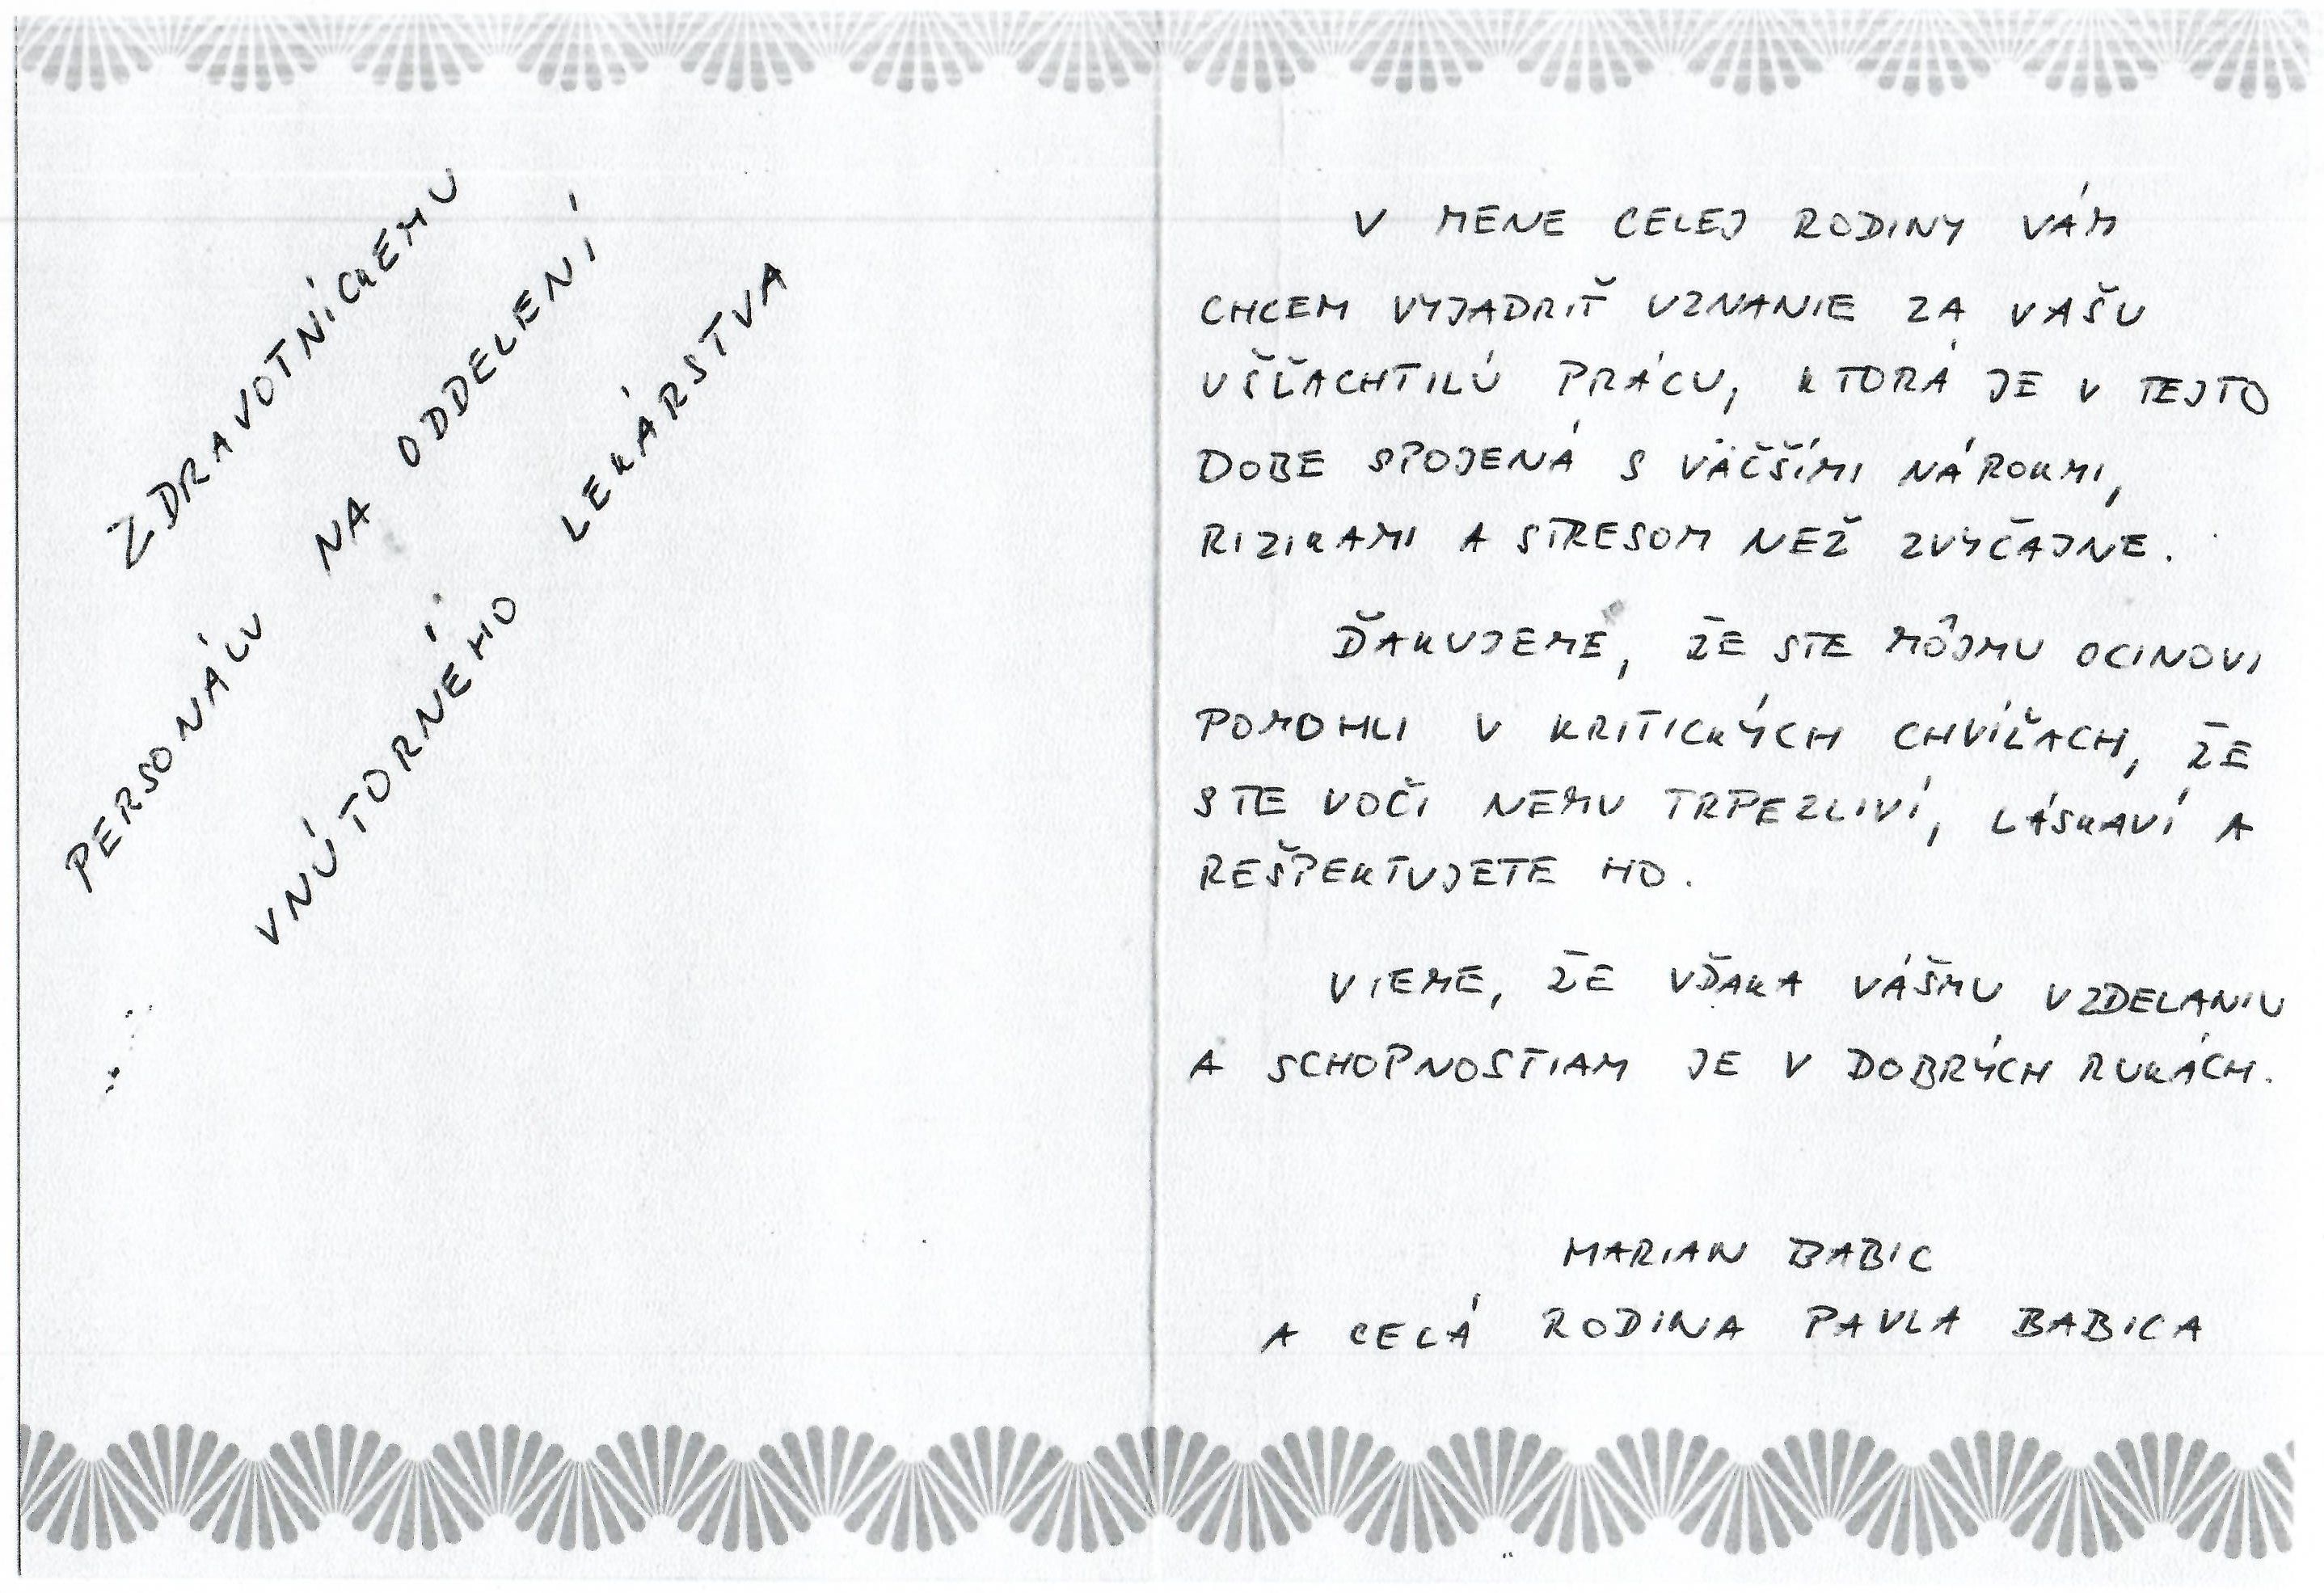 ZDRAVOTNÍCKEMU
PERSONÁLU NA ODDELENÍ
VNÚTORNÉHO LEKÁRSTVA
V MENE CELEJ RODINY VÁM
CHCEM VYJADRIŤ UZNANIE ZA VAŠU
UŠĽACHTILÚ PRÁCU, KTORÁ JE V TEJTO
DOBE SPOJENÁ S VÄČŠÍMI NÁROKMI,
RIZIKAMI A STRESOM NEŽ ZVYČAJNE.
ĎAKUJEME, ŽE STE MÔJMU OCINOVI
POMOHLI V KRITICKÝCH CHVÍĽACH, ŽE
STE VOČI NEMU TRPEZLIVÍ, LÁSKAVÍ A
REŠPEKTUJETE HO.
VIEME, ŽE VĎAKA VÁŠMU VZDELANIU
A SCHOPNOSTIAM JE V DOBRÝCH RUKÁCH.
MARIAN BABIC
A CELÁ RODINA PAVLA BABICA